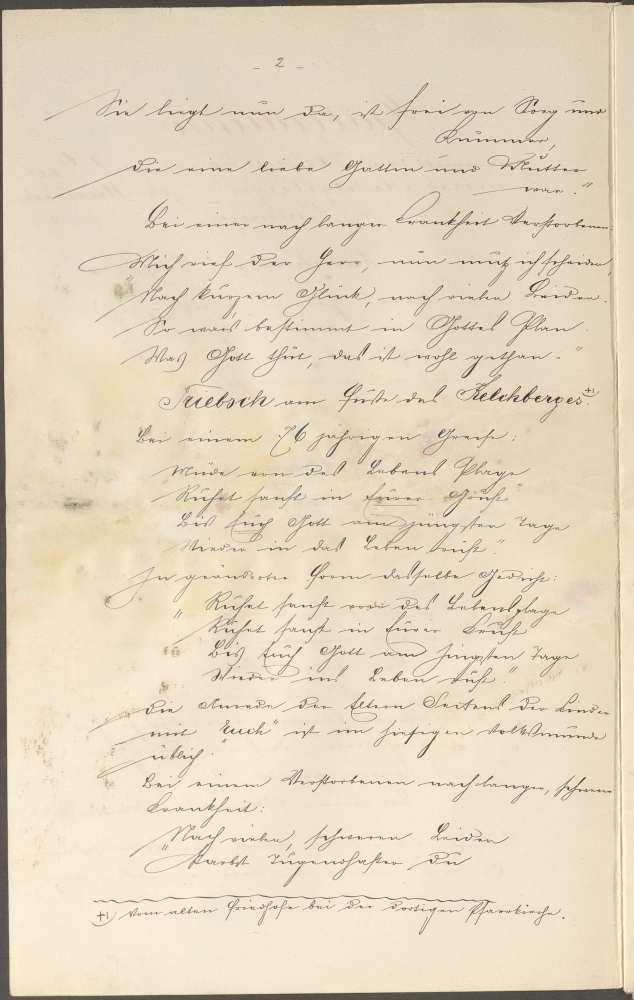 - 2 -
Sie liegt nun da, ist frei von Sorg und
Kummer,
Die eine liebe Gattin und Mutter
war."
Bei einer nach langer Krankheit Verstorbenen:
"Mich rief der Herr, nun muß ich scheiden,
Nach kurzem Glück, nach vielen Leiden.
So wars bestimmt in Gottes Plan.
Was Gott thut, das ist wohl gethan."
Triebsch am Fuße des Kelchberges. +)
Bei einem 76 jährigen Greise:
Müde von des Lebens Plage
Ruhet sanft in Eurer Gruft
Bis Euch Gott am jüngsten Tage
Wieder in das Leben ruft."
In geänderter Form dasselbe Gedicht:
"Ruhet sanft von des Lebensplage
Ruhet sanft in Eurer Gruft
Bis Euch Gott am jüngsten Tage
Wieder ins Leben ruft."
Die Anrede der Eltern Seitens der Kinder
mit "Euch" ist im hiesigen Volksmunde
üblich.
Bei einem Verstorbenen nach langer, schwerer
Krankheit:
"Nach vielen, schweren Leiden
Starbst Tugendhafter Du
+) Vom alten Friedhofe bei der dortigen Pfarrkirche.